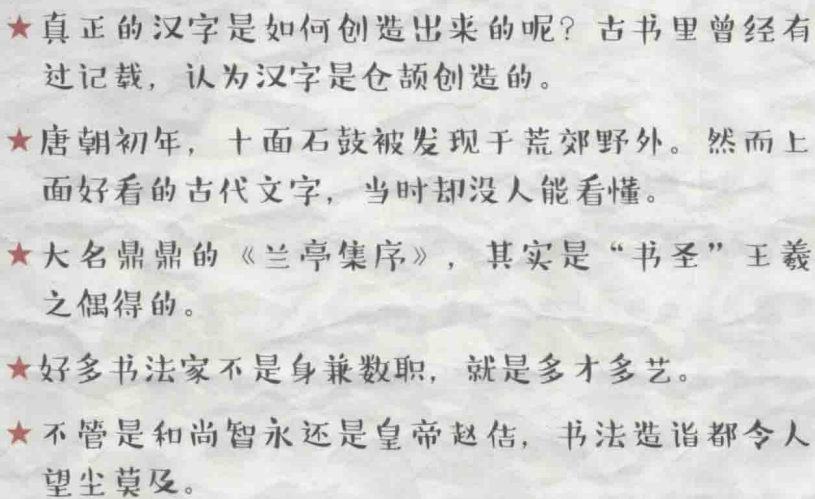 ★真正的汉字是如何创造出来的呢？古书里曾经有
过记载，认为汉字是仓颉创造的。
★唐朝初年，十面石鼓被发现于荒郊野外。然而上
面好看的古代文字，当时却没人能看懂。
★大名鼎鼎的《兰亭集序》，其实是“书圣”王羲
之偶得的。
★好多书法家不是身兼数职，就是多才多艺。
★不管是和尚智永还是皇帝赵佶，书法造诣都令人
望尘莫及。